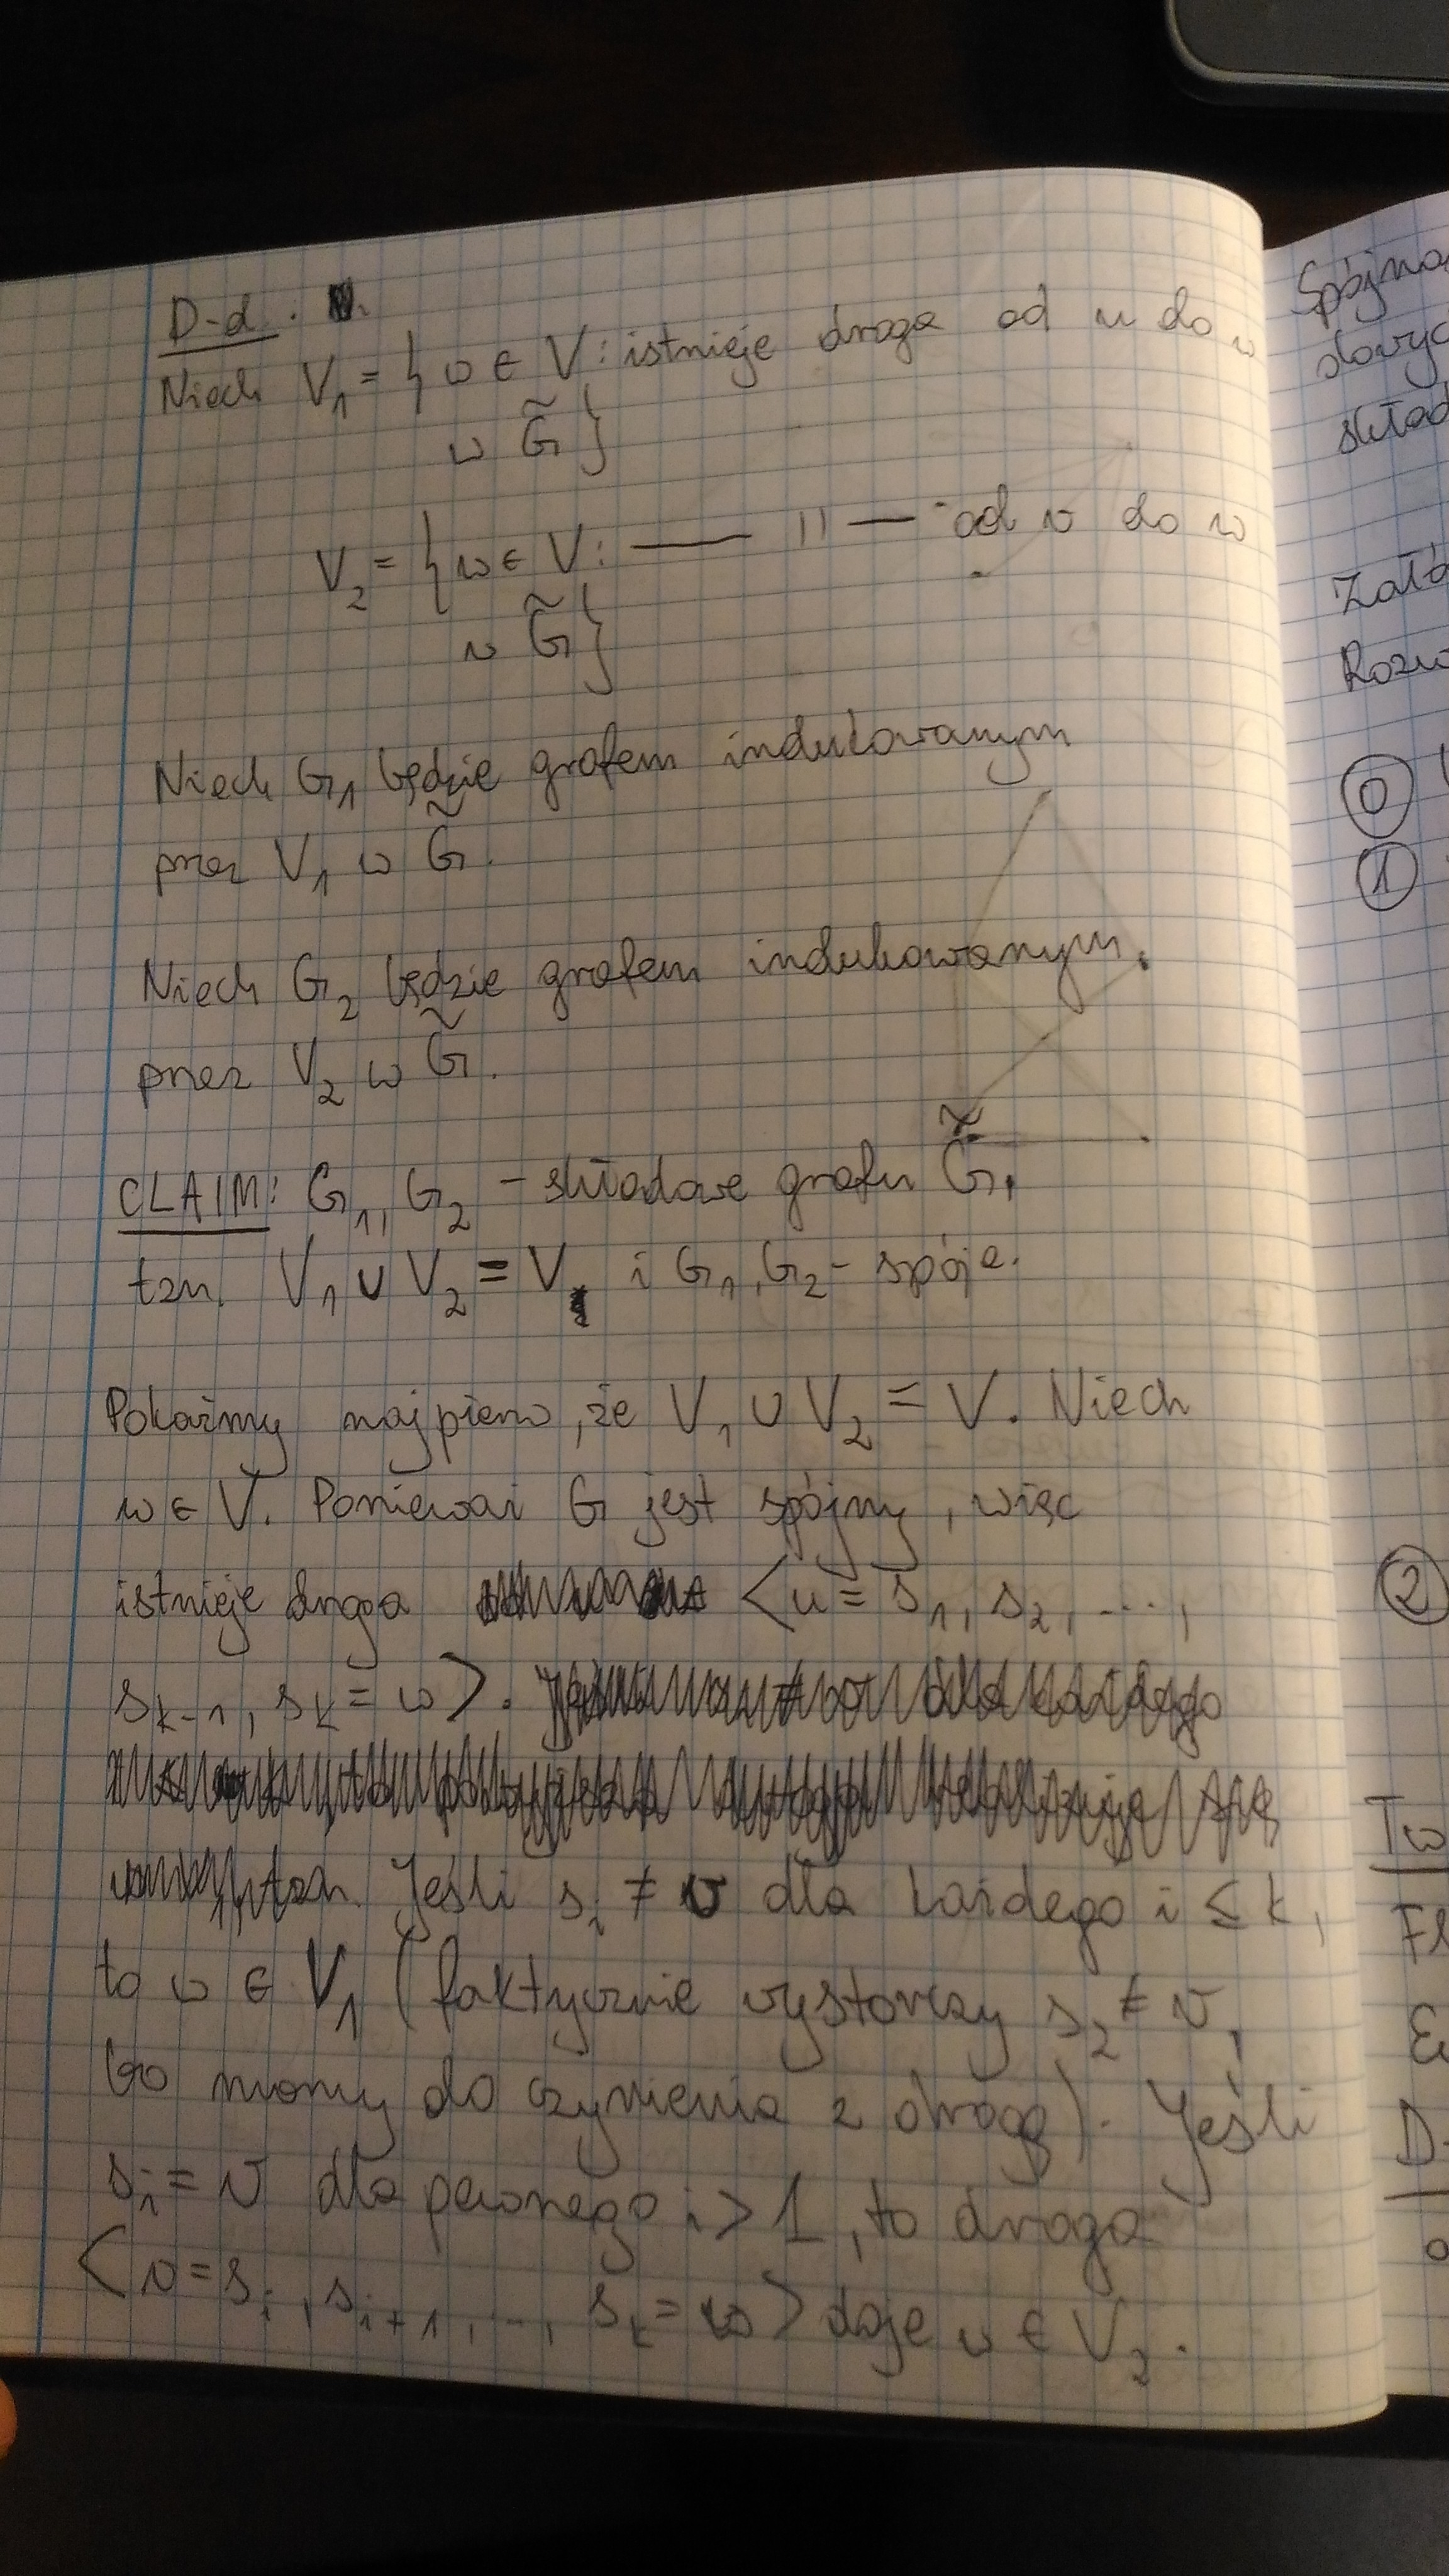 D-d.
Niech V₁ = { w ∈ V : istnieje droga od u do w
w G̃ }
V₂ = { w ∈ V : —— 〃 — od v do w
w G̃ }
Niech G₁ będzie grafem indukowanym
przez V₁ w G̃.
Niech G₂ będzie grafem indukowanym
przez V₂ w G̃.
CLAIM: G₁, G₂ - składowe grafu G̃,
tzn. V₁ ∪ V₂ = V i G₁, G₂ - spójne.
Pokażmy najpierw, że V₁ ∪ V₂ = V. Niech
w ∈ V. Ponieważ G jest spójny, więc
istnieje droga <u = s₁, s₂, ...,
sₖ₋₁, sₖ = w>.
Jeśli sᵢ ≠ v dla każdego i ≤ k,
to w ∈ V₁ (faktycznie wystarczy s₂ ≠ v,
bo mamy do czynienia z drogą). Jeśli
sᵢ = v dla pewnego i > 1, to droga
<v = sᵢ, sᵢ₊₁, ..., sₖ = w> daje w ∈ V₂.
Spójno
dowyc
skład
Zató
Rozw
0
1
2
Tw
D-